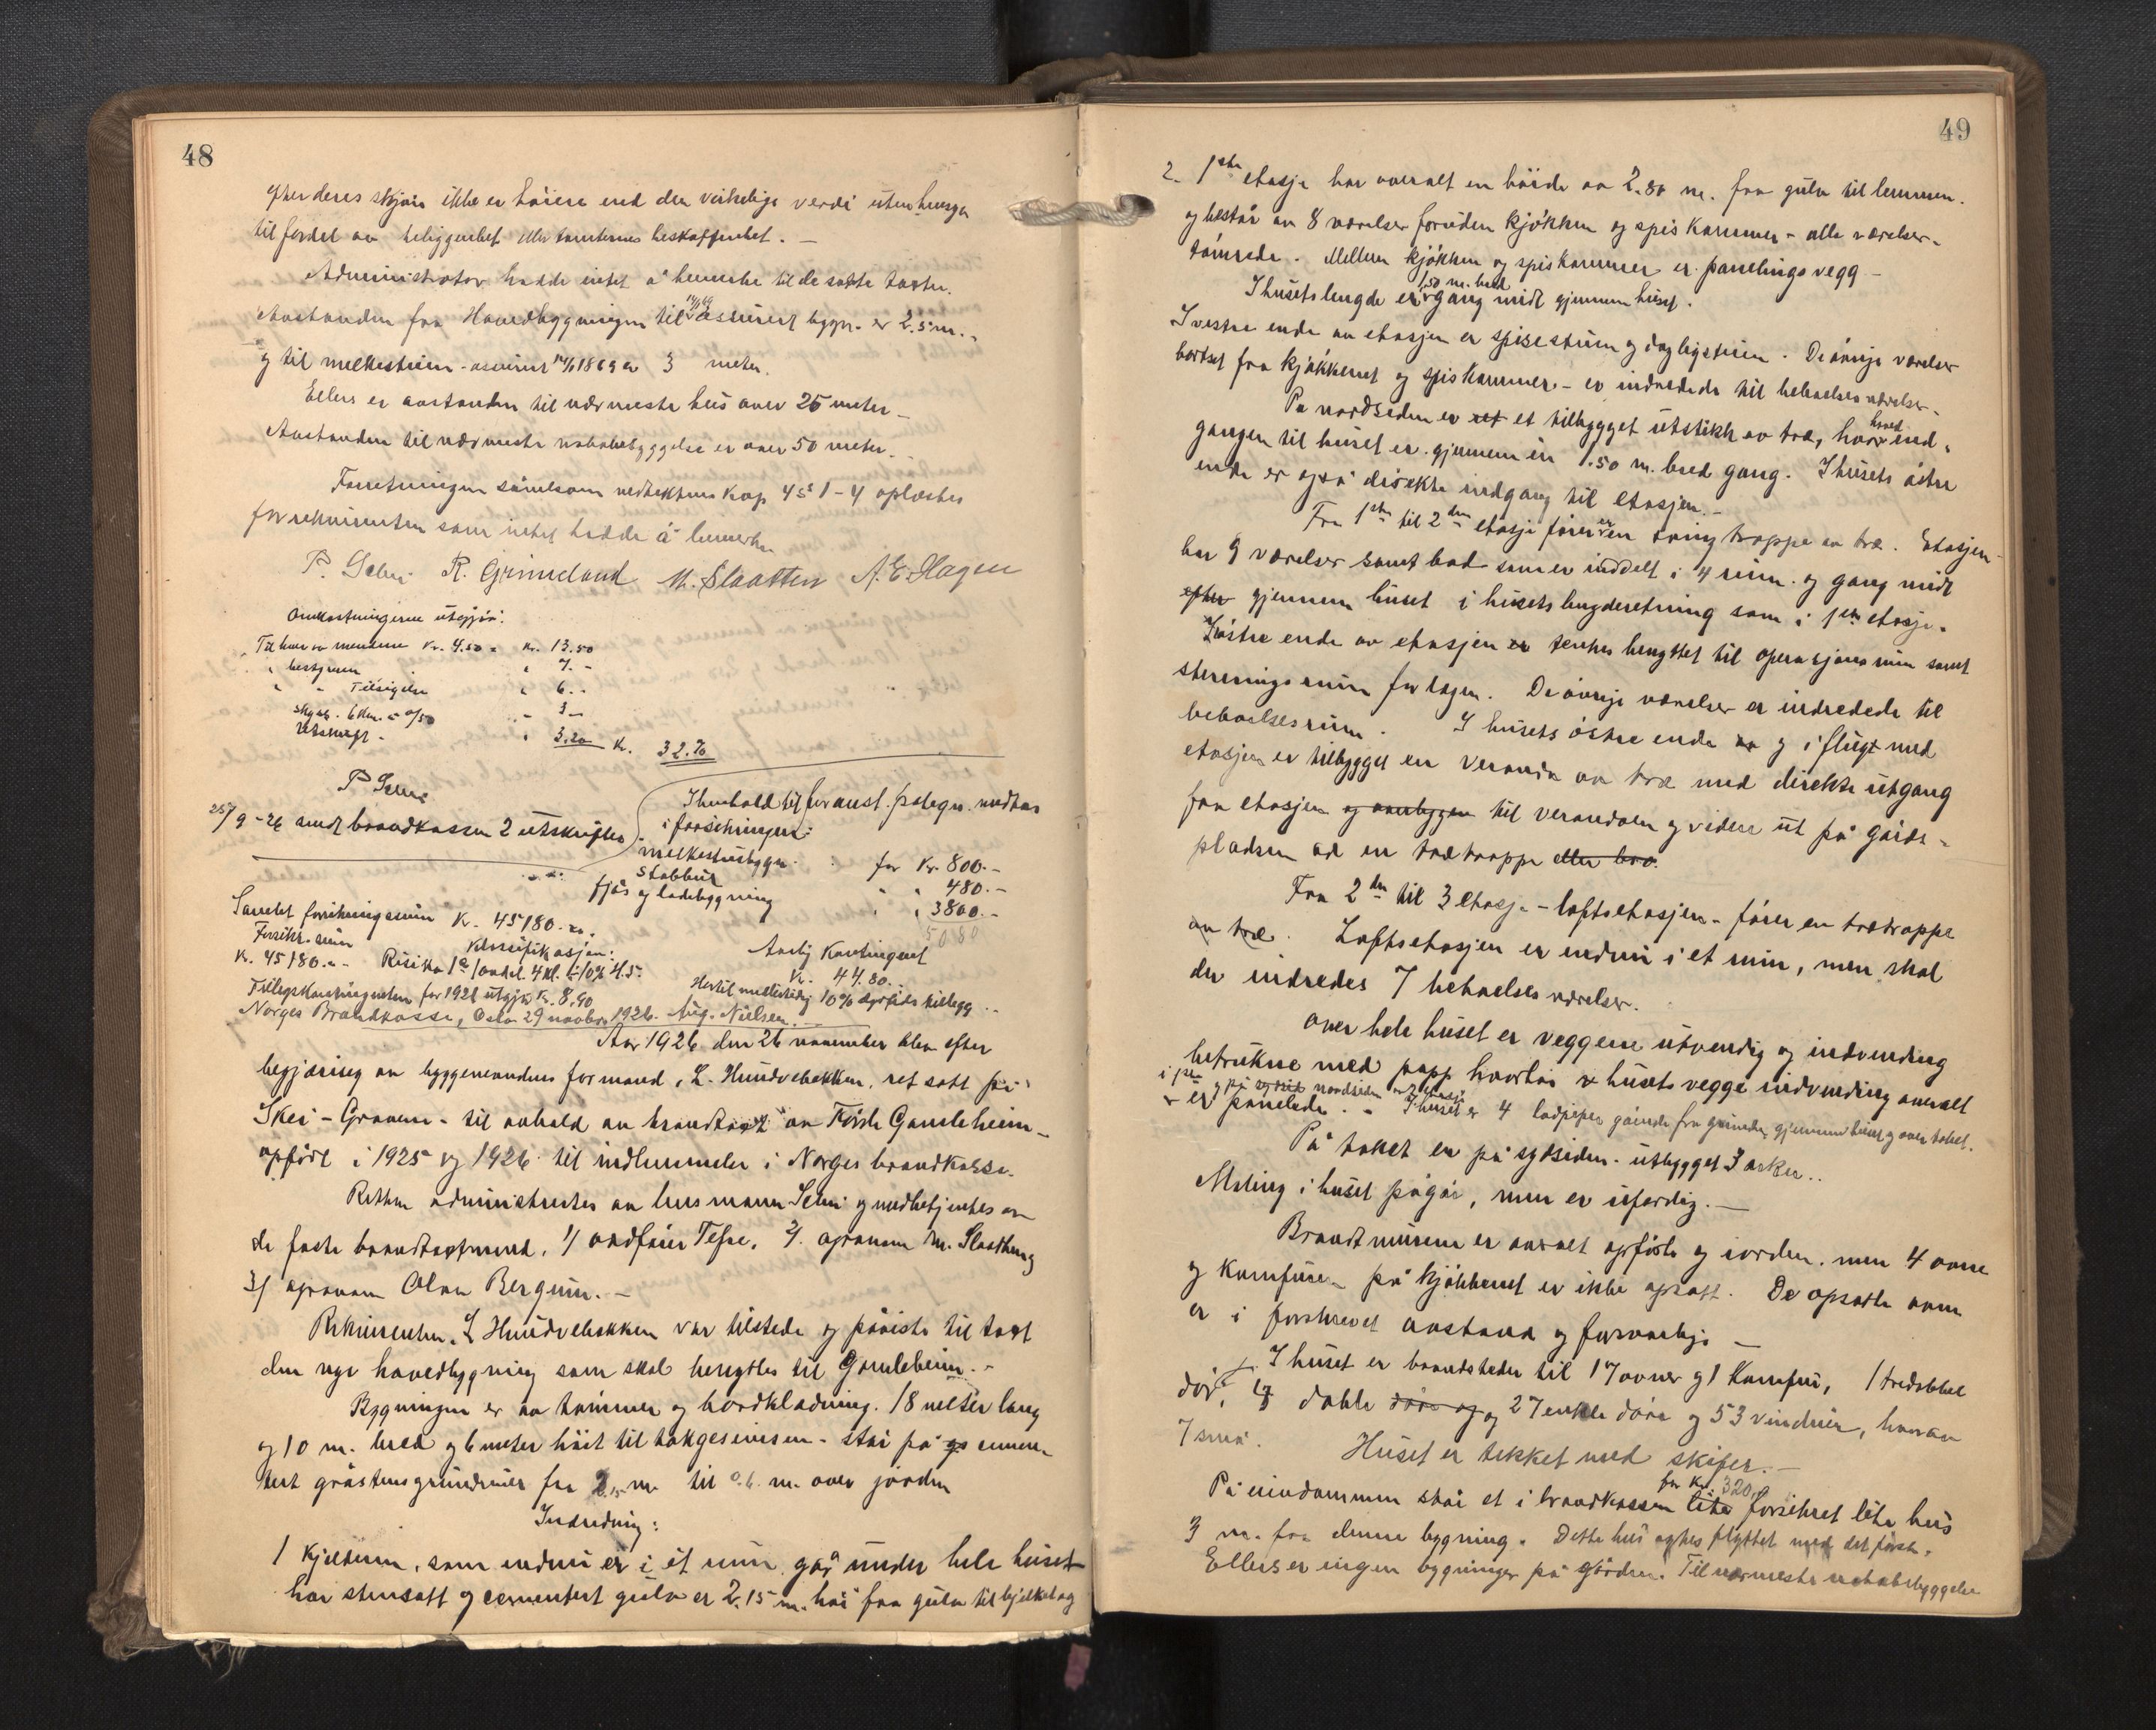 48
efter deres skjøn ikke er høiere end den virkelige verdi uten hensyn
til fordel av beliggenhet eller tomternes beskaffenhet. —
Administrator hadde intet å bemerke til de satte takster.
Avstanden fra Hovedbygningen til assurert bygn. er 2.5 m.
og til melkestuen - assurert 14/1 1869 er 3 meter.
Ellers er avstanden til nærmeste hus over 25 meter —
Avstanden til nærmeste nabobebyggelse er over 50 meter. —
Forretningen såvelsom vedtektenes kap 4 § 1 - 4 oplæstes
for rekvirenten som intet hadde å bemerke
P. Selmi R. Grimeland M. Slaatten A. E. Hagen
Omkostningerne utgjør:
Til hver av mendene kr. 4.50 = kr. 13.50
" bestyreren " 7. -
" " Tilsigelse " 6. -
Skyds. 6 km. à 0/50 " 3 -
Utskrift - " 3.20 kr. 32.70
P Selmi
25/9 - 26 sendt brandkassen 2 utskrifter
I henhold til foranst. påtegn. medtas
i forsikringen:
melkestubygn. : for kr. 800. -
Stabbur " " 480. -
fjøs og ladebygning " " 3800. -
5080
Samlet forsikringssum kr. 45180. -
Forsikr. sum Klassifikasjon: Aarlig Kontingent
kr. 45180. - Risiko 1a landd. 4 kl. ÷ 10% 4.5 kr. 44.80.
Hertil midlertidig 10% dyrtids tillegg
Tillegskontingenten for 1926 utgjør kr. 8.90
Norges Brandkasse, Oslo 29 novbr. 1926. Aug. Nielsen.
Aar 1926 den 26 november blev efter
begjæring av byggenevndens formand, L. Hundvebakken, ret satt på
Skei - Graven - til avhold av brandtakst av Førde Gamleheim -
opført i 1925 og 1926 til indlemmelse i Norges brandkasse.
Retten administrertes av lensmann Selmi og medbetjentes av
de faste brandtakstmend, 1/ ordfører Tefre, 2/ M. Slaatten og
3/ Olav Bergum. —
Rekvirenten, L Hundvebakken var tilstede og påviste til takst
den nye hovedbygning som skal benyttes til Gamleheim. -
Bygningen er av tømmer og bordkledning. 18 meter lang
og 10 m. bred og 6 meter høit til takgesimsen - står på cemen-
tert gråstens grundmur fra 2.15 m. til 0.6. m. over jorden
Indredning:
1 Kjelderrum, som endnu er i ét rum går under hele huset
har stensatt og cementert gulv er 2.15 m. høi fra gulv til bjelkelag
49
2. 1ste etasje har overalt en høide av 2.80 m. fra gulv til lemmen.
og består av 8 værelser foruden kjøkken og spiskammer - alle værelser
tømrede. Mellem kjøkken og spiskammer er panelingsvegg -
1.50 m. bred
I husets lengde er gang midt gjennem huset.
I vestre ende av etasjen er spisestuen og dagligstuen. De øvrige værelser
bortset fra kjøkkenet og spiskammer - er indredede til beboelses værelser.
På nordsiden er ret et tilbygget utstikk av træ, hvor ind-
hoved
gangen til huset er gjennem en 1.50 m. bred gang. I husets østre
ende er også direkte indgang til etasjen. -
Fra 1ste til 2den etasje fører en sving trappe av træ. Etasjen
har 9 værelser samt bad som er inddelt i 4 rum. og gang midt
efter gjennem huset i husets lengderetning som i 1ste etasje.
I østre ende av etasjen er tenkes benyttet til operasjonsrum samt
steriliseringsrum for lægen. De øvrige værelser er indredede til
beboelsesrum. I husets østre ende er og i flugt med
etasjen er tilbygget en veranda av træ med direkte utgang
fra etasjen og overbygger til verandaen og videre ut på gårds-
pladsen ad en trætrappe eller bro.
Fra 2den til 3 etasje - loftsetasjen - fører en trætrappe
av træ. Loftsetasjen er endnu i et rum, men skal
der indredes 7 beboelses værelser.
Over hele huset er veggene utvendig og indvendig
betrukne med papp hvorhos husets vegge indvendig overalt
i 1ste og på nordsiden av 2 etasje
er panelede. - I huset er 4 ladpiper gående fra grunden gjennem huset og over taket.
På taket er på sydsiden utbygget 3 arker.
Maling i huset pågår, men er uferdig. —
Brandmurene er overalt opførte og iorden, men 4 ovne
og komfuren på kjøkkenet er ikke opsatt. De opsatte ovne
er i forskrevet avstand og forsvarlige —
I huset er brandsteder til 17 ovner og 1 Komfur, 1 tredobbel
dør, 4 doble døre og og 27 enkle døre og 53 vinduer, hvorav
7 små. Huset er tekket med skifer. —
for kr. 320.
På eiendommen står et i brandkassen lite forsikret lite hus
3 m. fra denne bygning. Dette hus agtes flyttet med det første.
Ellers er ingen bygninger på gården. Til nærmeste nabobebyggelse